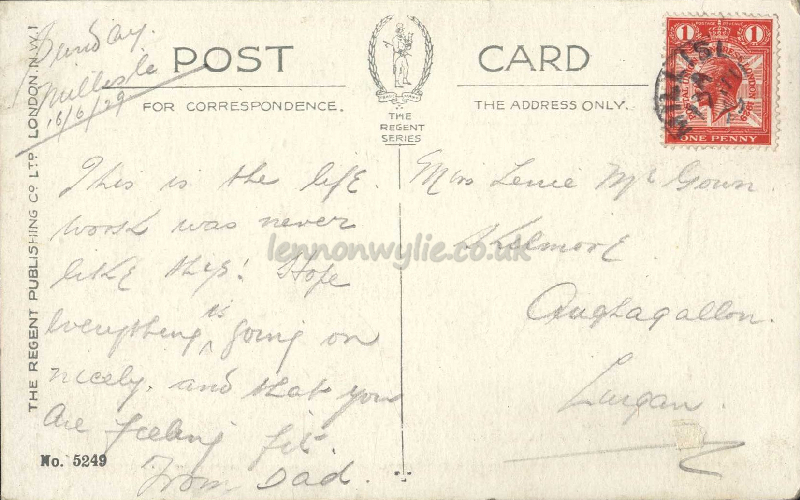 Sunday.
Millisle
16/6/29
POST CARD
FOR CORRESPONDENCE.
THE ADDRESS ONLY.
THE
REGENT
SERIES
THE REGENT PUBLISHING CO LTD LONDON. N.W.1
1 POSTAGE REVENUE 1
ONE PENNY
This is the life.
work was never
like this! Hope
Everything is going on
nicely. and that you
are feeling fit.
From Dad.
Miss Lenie McGown.
Skelmore.
Aughagallon.
Lurgan.
No. 5249
lennonwylie.co.uk